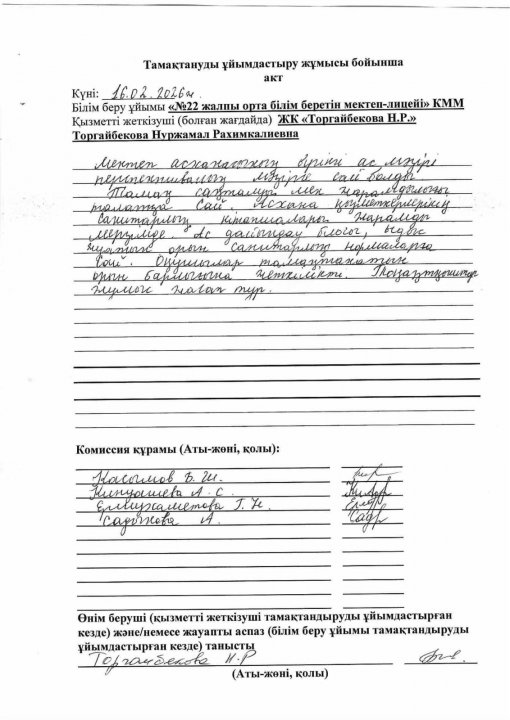 Тамақтануды ұйымдастыру жұмысы бойынша
акт
Күні: 16.02.2026ж
Білім беру ұйымы «№22 жалпы орта білім беретін мектеп-лицейі» КММ
Қызметті жеткізуші (болған жағдайда) ЖК «Торгайбекова Н.Р.»
Торгайбекова Нуржамал Рахимкалиевна
Мектеп асханасының бірінші ас мәзірі
перспективалық мәзірге сай болды.
Тамақ сақталуы мен жарамдылығы
талапқа сай. Асхана қызметкерлерінің
санитарлық кітапшалары жарамды
мерзімде. Ас дайындау блогы, ыдыс
жуатын орын санитарлық нормаларға
сай. Оқушылар тамақтанатын
орын барлығына жеткілікті.
жұмыс жасап тұр.
Комиссия құрамы (Аты-жөні, қолы):
Касымов Б. Ш.
А. С.
Г. К.
Садыкова А. Садр
Өнім беруші (қызметті жеткізуші тамақтандыруды ұйымдастырған
кезде) және/немесе жауапты аспаз (білім беру ұйымы тамақтандыруды
ұйымдастырған кезде) танысты
Торгайбекова Н.Р
(Аты-жөні, қолы)